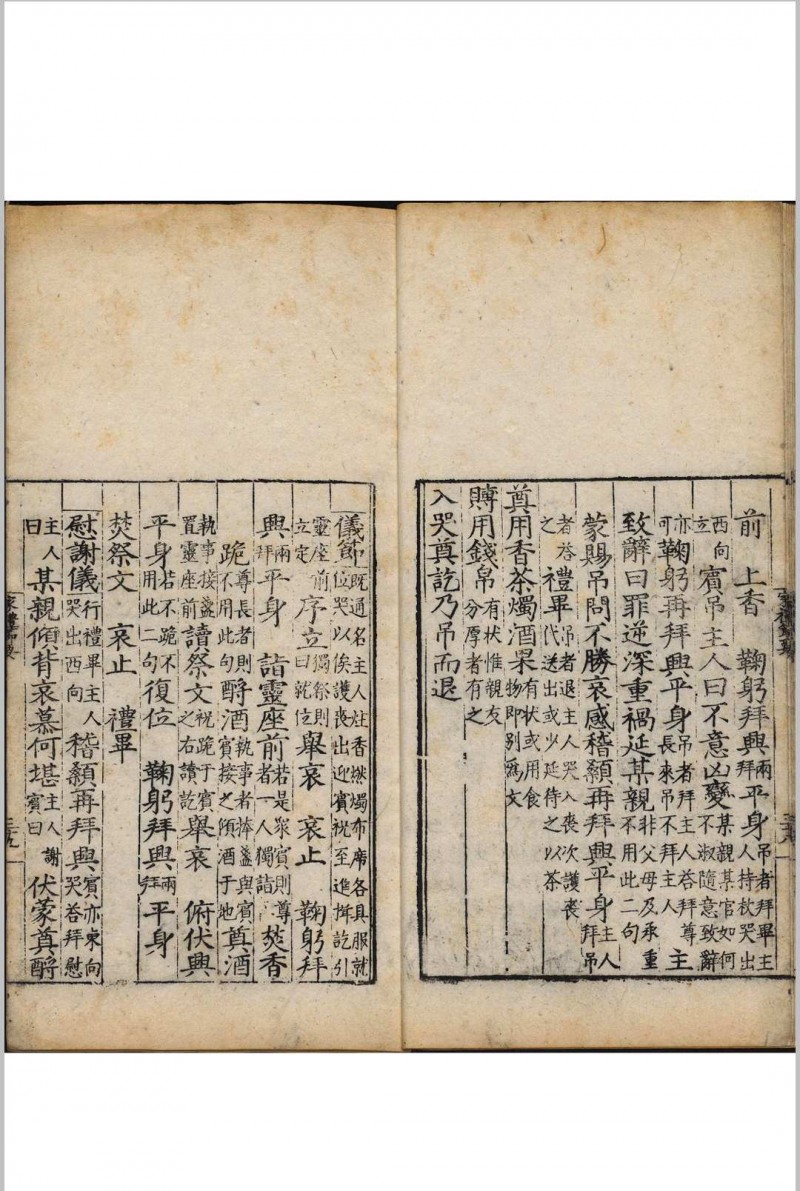 前　上香　鞠躬拜興兩拜平身吊者拜畢主人持杖哭出
西向立賓吊主人曰不意凶變某親某官如何不淑隨意致辭
亦可鞠躬再拜興平身吊者拜主人荅拜尊長來吊不拜主人主
致辭曰罪逆深重禍延某親非父母及承重不用此二句
蒙賜吊問不勝哀感稽顙再拜興平身主人拜吊
者荅之禮畢吊者退主人哭入喪次護喪代送出或少延待之以茶
奠用香茶燭酒果有狀或用食物即别爲文
賻用錢帛有狀惟親友分厚者有之
入哭奠訖乃吊而退
儀節既通名主人炷香燃燭布席各具服就位哭以俟護喪出迎賓祝至進揖訖引
靈座前立定序立獨祭則曰就位舉哀　哀止　鞠躬拜
興兩拜平身　詣靈座前若是眾賓則尊者一人獨詣焚香
跪尊長者則不用此句酹酒執事者捧盞與賓賓接之傾酒于地奠酒
執事接盞置靈座前讀祭文祝跪于賓之右讀訖舉哀　俯伏興
平身若不跪不用此二句復位　鞠躬拜興兩拜平身
焚祭文　哀止　禮畢
慰謝儀行禮畢主人哭出西向稽顙再拜興賓亦東向哭荅拜慰
主人曰某親傾背哀慕何堪主人謝賓曰伏蒙奠酹